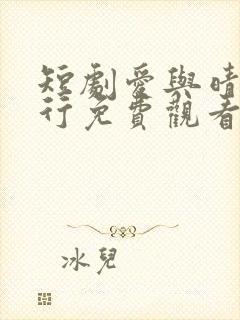 短劇愛與晴
行免費觀看
冰兒